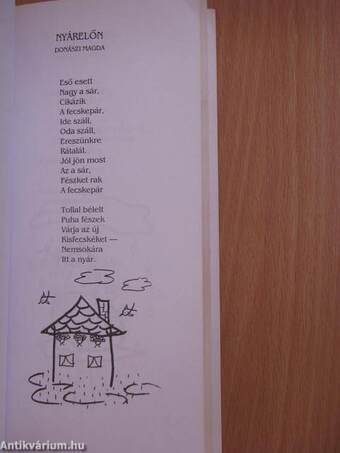 NYÁRELŐN
DONÁSZI MAGDA
Eső esett
Nagy a sár,
Cikázik
A fecskepár,
Ide száll,
Oda száll,
Ereszünkre
Rátalál.
Jól jön most
Az a sár,
Fészket rak
A fecskepár
Tollal bélelt
Puha fészek
Várja az új
Kisfecskéket —
Nemsokára
Itt a nyár.
Antikvárium.hu